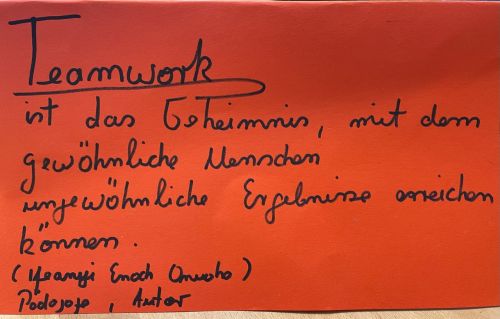 Teamwork
ist das Geheimnis, mit dem
gewöhnliche Menschen
ungewöhnliche Ergebnisse erreichen
können.
(Ifeanyi Enoch Onuoha)
Pädagoge, Autor